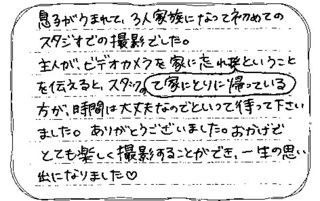 息子がうまれて、3人家族になって初めての
スタジオでの撮影でした。
主人が、ビデオカメラを家に忘れ
を伝えると、スタッフの
て家にとりに帰っている
方が、時間は大丈夫なのでといって待って下さい
ました。ありがとうございました。おかげで
とても楽しく撮影することができ、一生の思い
出になりました♡